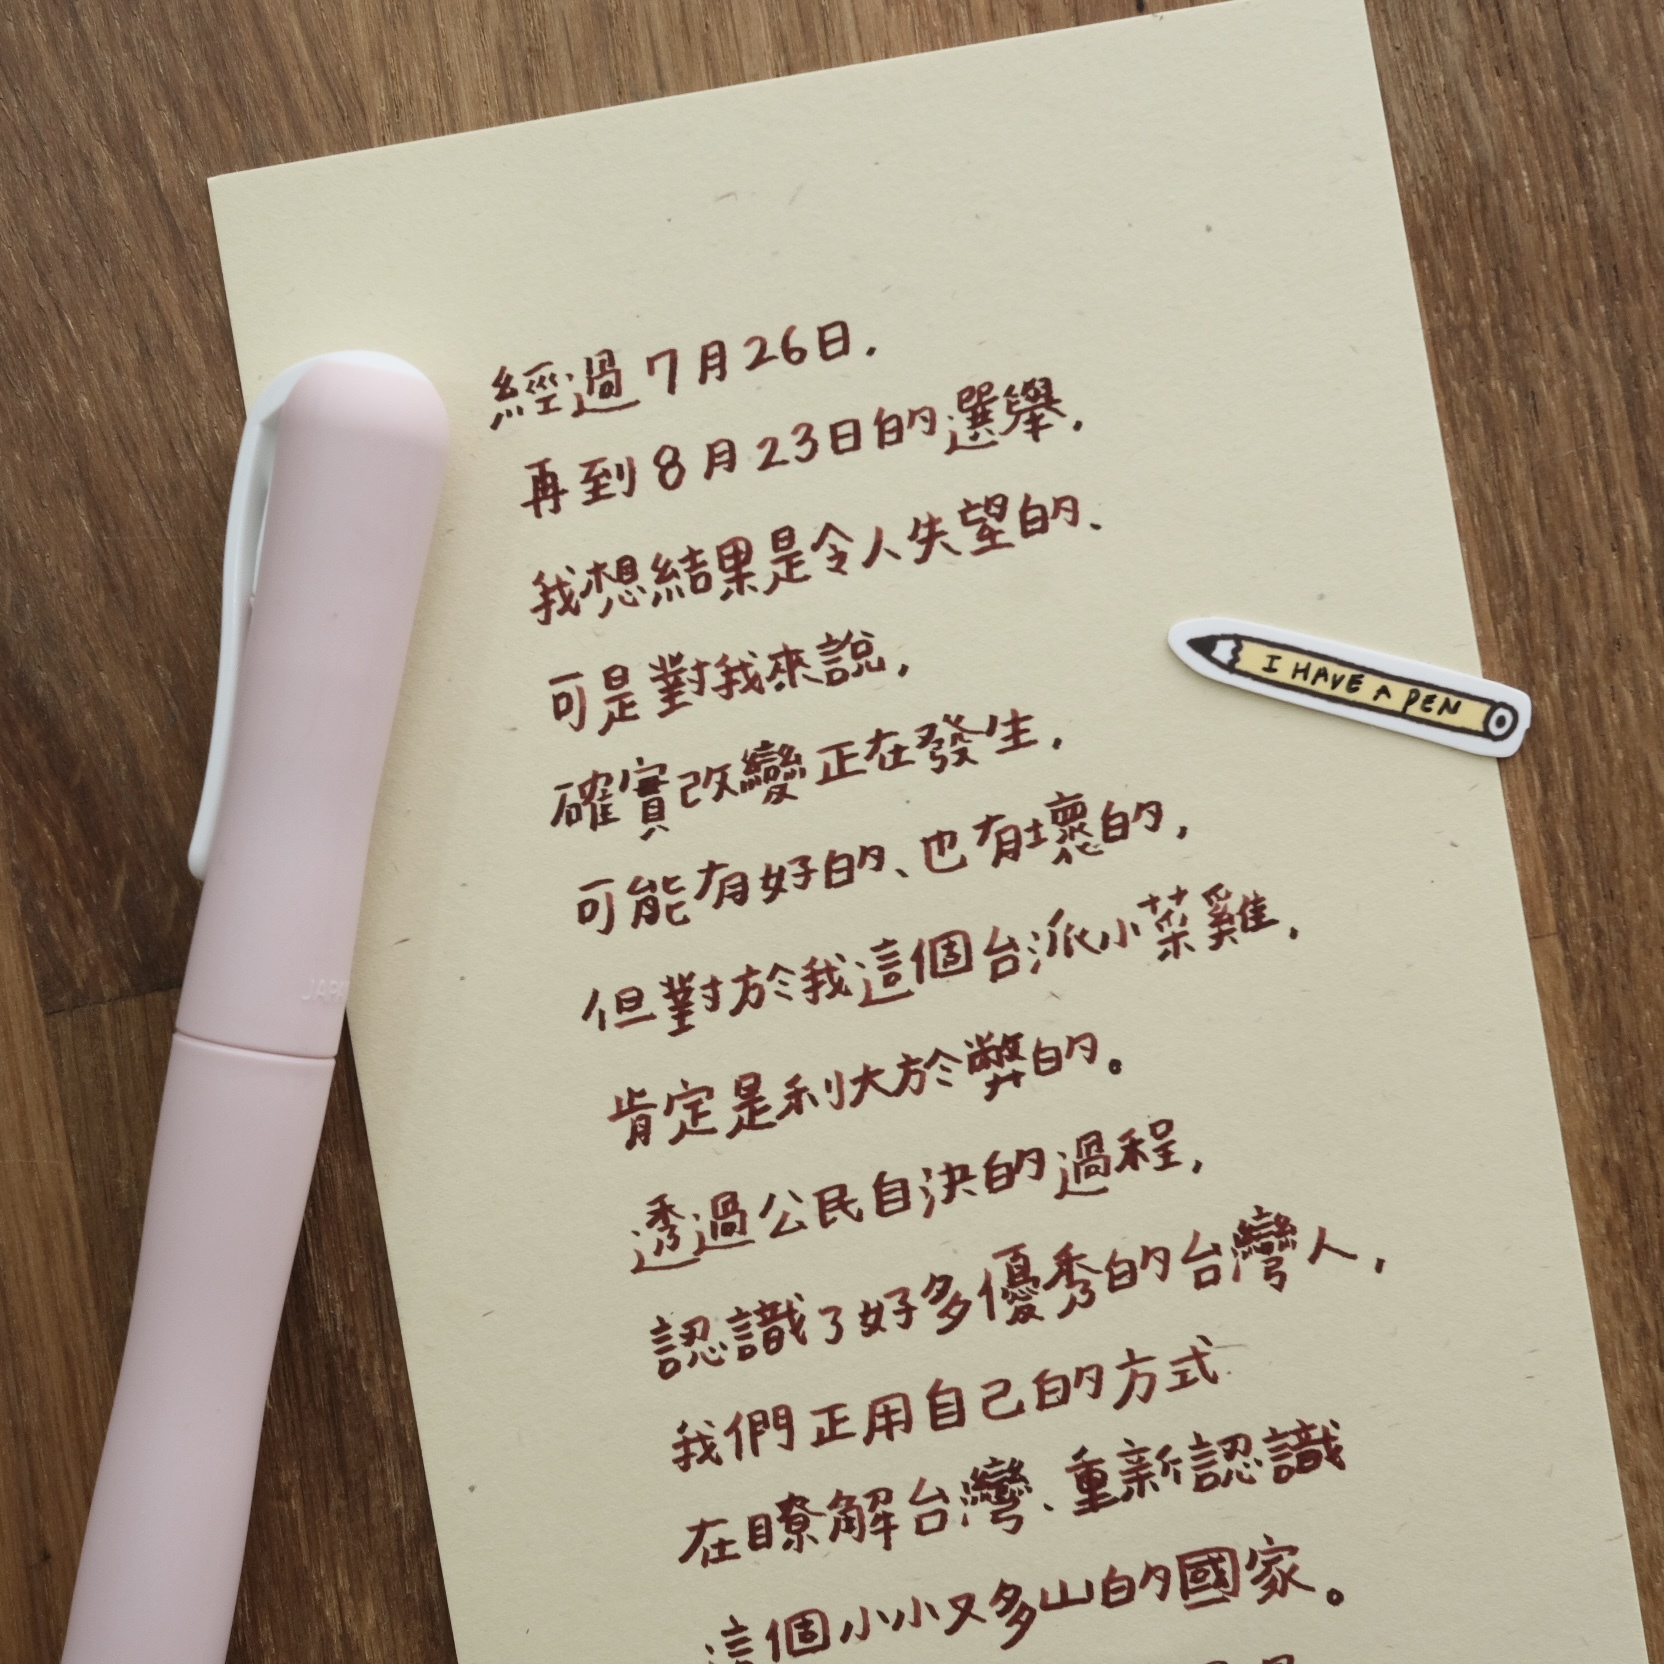 經過7月26日,
再到8月23日的選舉,
我想結果是令人失望的、
可是對我來說,
確實改變正在發生,
可能有好的、也有壞的,
但對於我這個台派小菜雞,
肯定是利大於弊的。
透過公民自決的過程,
認識了好多優秀的台灣人,
我們正用自己的方式
在瞭解台灣、重新認識
這個小小又多山的國家。
I HAVE A PEN
JAPA